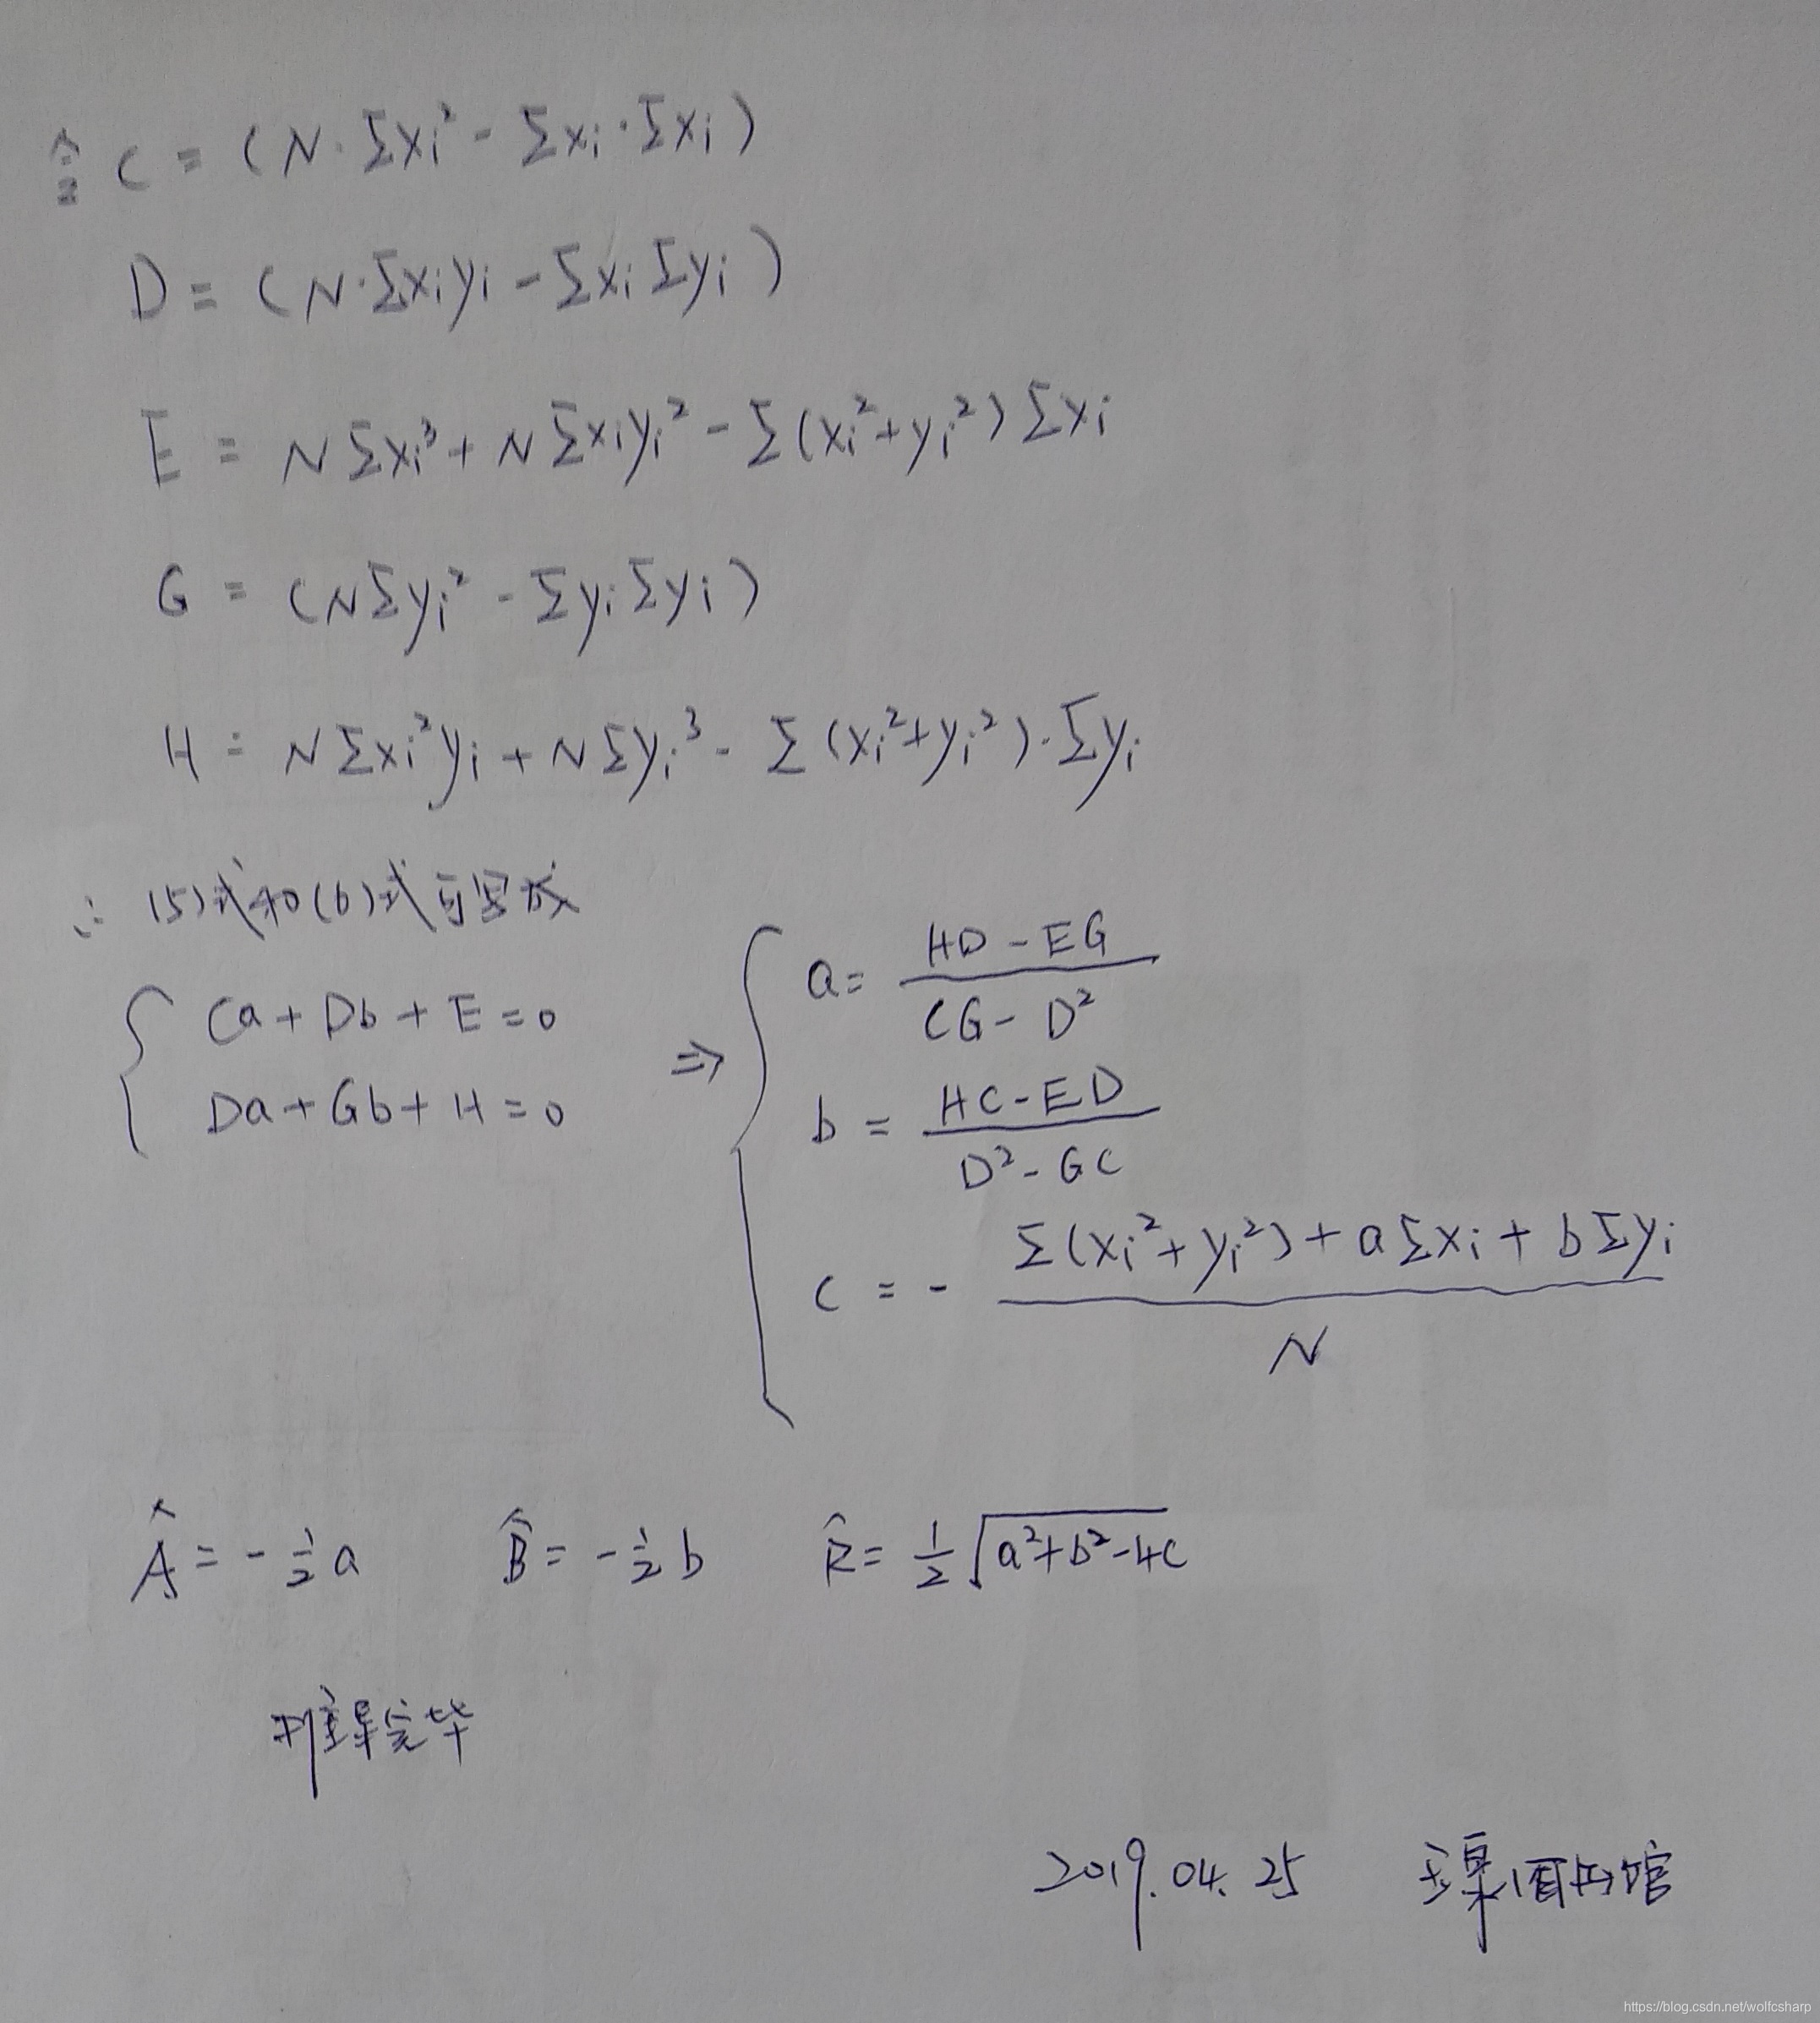 令 C = (N·Σxi² - Σxi·Σxi)
D = (N·Σxiyi - Σxi Σyi)
E = NΣxi³ + NΣxiyi² - Σ(xi²+yi²)Σxi
G = (NΣyi² - ΣyiΣyi)
H = NΣxi²yi + NΣyi³ - Σ(xi²+yi²)·Σyi
∴ (5)式和(6)式可写成
{ Ca + Db + E = 0
Da + Gb + H = 0
⇒ { a = (HD - EG) / (CG - D²)
b = (HC - ED) / (D² - GC)
c = - (Σ(xi²+yi²) + aΣxi + bΣyi) / N
Â = -½a B̂ = -½b R̂ = ½√(a²+b²-4c)
推导完毕
2019.04.25
https://blog.csdn.net/wolfcsharp